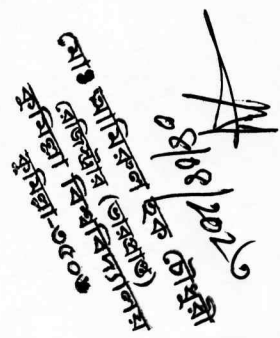 মোঃ আমিরুল হক চৌধুরী
রেজিস্ট্রার (ভারপ্রাপ্ত)
কুমিল্লা বিশ্ববিদ্যালয়
কুমিল্লা-৩৫০৬